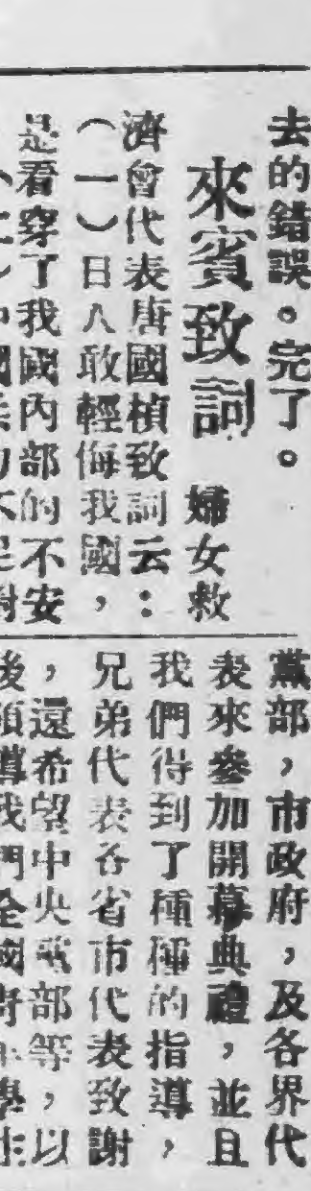 去的錯誤。完了。
來賓致詞　婦女救
濟會代表唐國楨致詞云：
（一）日人敢輕侮我國，
是看穿了我國內部的不安
黨部，市政府，及各界代
表來參加開幕典禮，並且
我們得到了種種的指導，
兄弟代表各省市代表致謝
，還希望中央黨部等，以
後領導我們全國青年學生